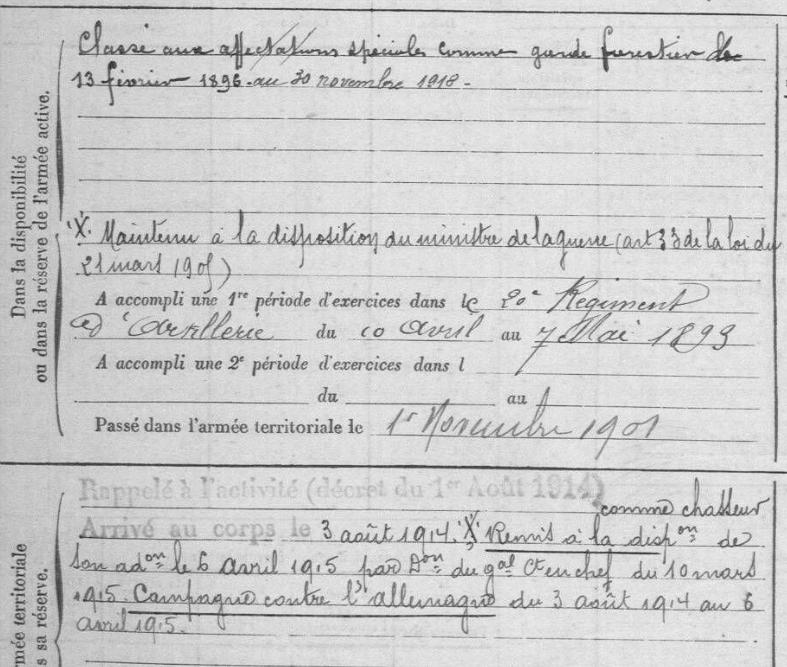 Classé aux affectations spéciales comme garde forestier du
13 février 1896 au 30 novembre 1918 -
Dans la disponibilité
ou dans la réserve de l'armée active.
X. Maintenu à la disposition du ministre de la guerre (art 33 de la loi du
21 mars 1905)
A accompli une 1re période d'exercices dans le 20e Régiment
d'Artillerie du 10 Avril au 7 Mai 1893
A accompli une 2e période d'exercices dans l
du au
Passé dans l'armée territoriale le 1er Novembre 1901
Rappelé à l'activité (décret du 1er Août 1914)
comme chasseur
Arrivé au corps le 3 août 1914. X Remis à la dispon de
son adon le 6 avril 1915 par Don du gal Ct en chef du 10 mars
1915. Campagne contre l'allemagne du 3 août 1914 au 6
avril 1915.
rmée territoriale
s sa réserve.